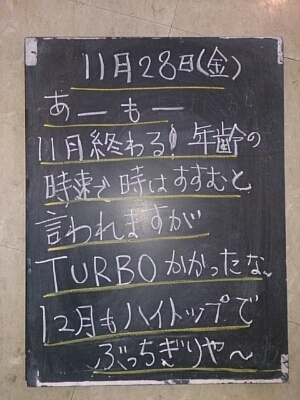 11月28日(金)
あーもー
11月終わる! 年齢の
時速で時はすすむと
言われますが
TURBOかかったな~
12月もハイトップで
ぶっちぎりや~